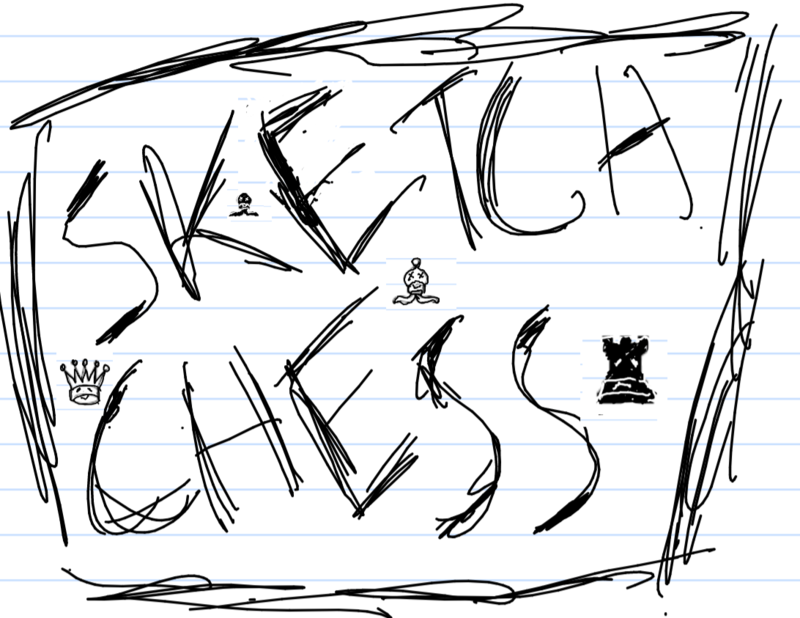 SKETCH
CHESS